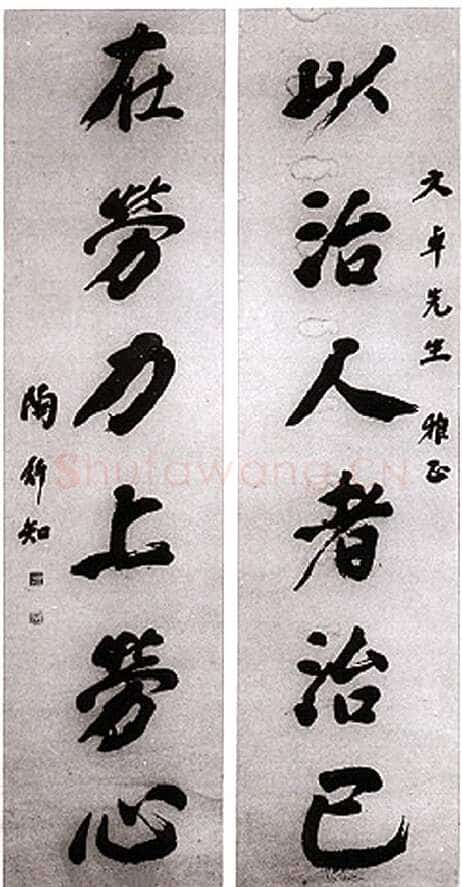 文卓先生 雅正
以治人者治己
在勞力上勞心
陶行知
Shufawang.CN